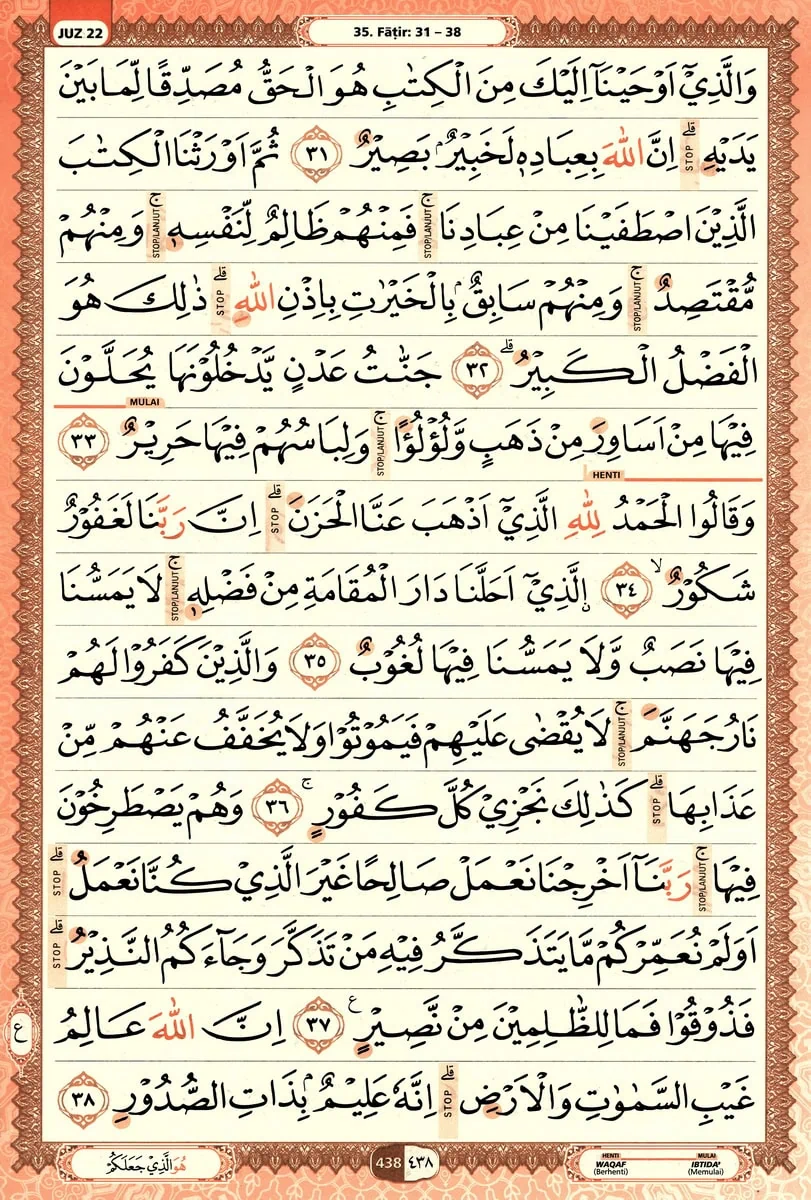 JUZ 22
35. Fāṭir: 31 – 38
وَالَّذِيْٓ اَوْحَيْنَآ اِلَيْكَ مِنَ الْكِتٰبِ هُوَ الْحَقُّ مُصَدِّقًا لِّمَا بَيْنَ
يَدَيْهِۗ STOP اِنَّ اللّٰهَ بِعِبَادِهٖ لَخَبِيْرٌۢ بَصِيْرٌ ٣١ ثُمَّ اَوْرَثْنَا الْكِتٰبَ
الَّذِيْنَ اصْطَفَيْنَا مِنْ عِبَادِنَاۚ STOP/LANJUT فَمِنْهُمْ ظَالِمٌ لِّنَفْسِهٖۚ STOP/LANJUT وَمِنْهُمْ
مُّقْتَصِدٌۚ STOP/LANJUT وَمِنْهُمْ سَابِقٌۢ بِالْخَيْرٰتِ بِاِذْنِ اللّٰهِۗ STOP ذٰلِكَ هُوَ
الْفَضْلُ الْكَبِيْرُۗ ٣٢ جَنّٰتُ عَدْنٍ يَّدْخُلُوْنَهَا يُحَلَّوْنَ
MULAI
فِيْهَا مِنْ اَسَاوِرَ مِنْ ذَهَبٍ وَّلُؤْلُؤًاۚ STOP/LANJUT وَلِبَاسُهُمْ فِيْهَا حَرِيْرٌ ٣٣
HENTI
وَقَالُوا الْحَمْدُ لِلّٰهِ الَّذِيْٓ اَذْهَبَ عَنَّا الْحَزَنَۗ STOP اِنَّ رَبَّنَا لَغَفُوْرٌ
شَكُوْرٌۙ ٣٤ ۨالَّذِيْٓ اَحَلَّنَا دَارَ الْمُقَامَةِ مِنْ فَضْلِهٖۚ STOP/LANJUT لَا يَمَسُّنَا
فِيْهَا نَصَبٌ وَّلَا يَمَسُّنَا فِيْهَا لُغُوْبٌ ٣٥ وَالَّذِيْنَ كَفَرُوْا لَهُمْ
نَارُ جَهَنَّمَۚ STOP/LANJUT لَا يُقْضٰى عَلَيْهِمْ فَيَمُوْتُوْا وَلَا يُخَفَّفُ عَنْهُمْ مِّنْ
عَذَابِهَاۗ STOP كَذٰلِكَ نَجْزِيْ كُلَّ كَفُوْرٍۚ ٣٦ وَهُمْ يَصْطَرِخُوْنَ
فِيْهَاۚ STOP/LANJUT رَبَّنَآ اَخْرِجْنَا نَعْمَلْ صَالِحًا غَيْرَ الَّذِيْ كُنَّا نَعْمَلُۗ STOP
اَوَلَمْ نُعَمِّرْكُمْ مَّا يَتَذَكَّرُ فِيْهِ مَنْ تَذَكَّرَ وَجَاۤءَكُمُ النَّذِيْرُۗ STOP
فَذُوْقُوْا فَمَا لِلظّٰلِمِيْنَ مِنْ نَّصِيْرٍ ع ٣٧ اِنَّ اللّٰهَ عَالِمُ
ع
غَيْبِ السَّمٰوٰتِ وَالْاَرْضِۗ STOP اِنَّهٗ عَلِيْمٌۢ بِذَاتِ الصُّدُوْرِ ٣٨
هُوَ الَّذِيْ جَعَلَكُمْ
438 ٤٣٨
HENTI WAQAF (Berhenti)
MULAI IBTIDA' (Memulai)